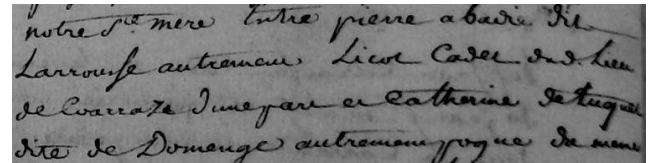 notre Ste mere Entre pierre abadie dit
Larrousse autrement Licot Cadet dud. Lieu
de Coarraze d'une part et Catherine de tuquet
dite de Domenge autrement pogue du meme